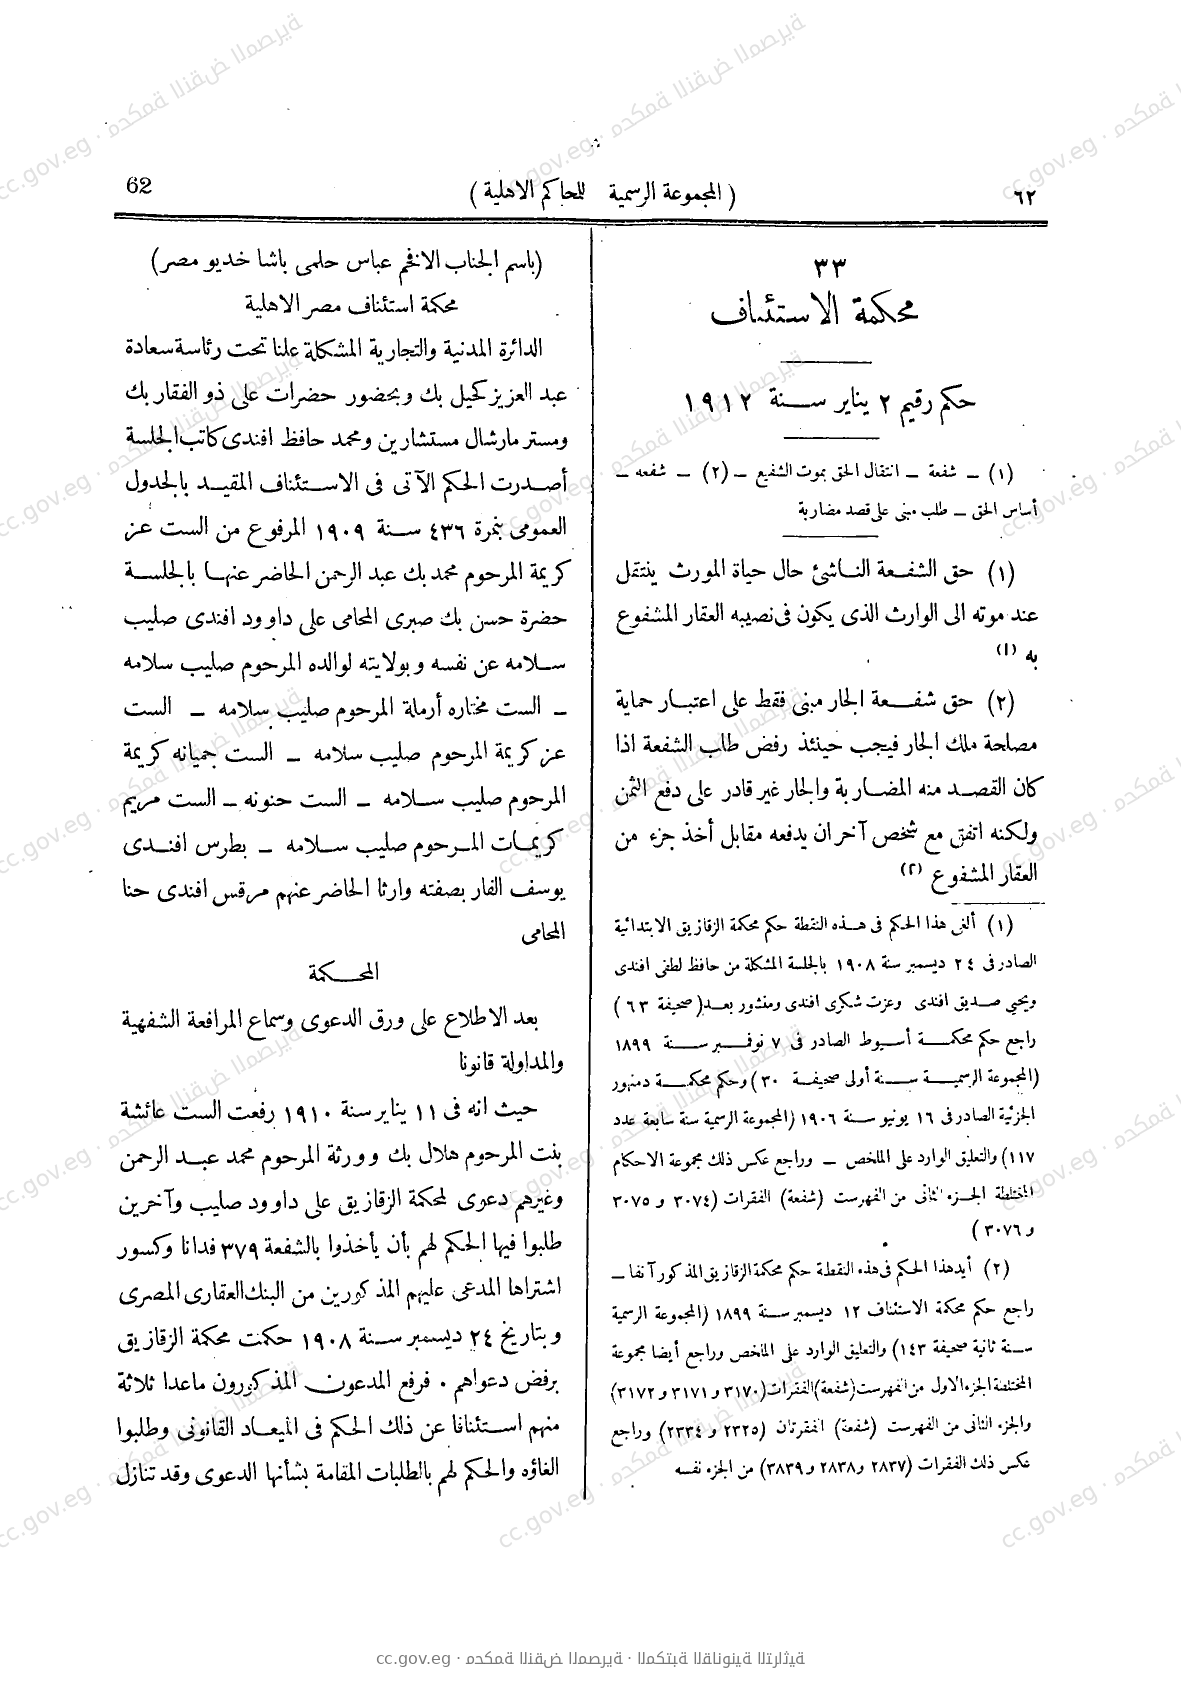 ٦٢
( المجموعة الرسمية للمحاكم الاهلية )
62
٣٣
محكمة الاستئناف
حكم رقيم ٢ يناير سنة ١٩١٢
(١) ـ شفعة ـ انتقال الحق بموت الشفيع ـ (٢) ـ شفعه ـ
أساس الحق ـ طلب مبنى على قصد مضاربة
(١) حق الشفعة الناشئ حال حياة المورث ينتقل
عند موته الى الوارث الذى يكون فى نصيبه العقار المشفوع
به (١)
(٢) حق شفعة الجار مبنى فقط على اعتبار حماية
مصلحة ملك الجار فيجب حينئذ رفض طلب الشفعة اذا
كان القصد منه المضاربة والجار غير قادر على دفع الثمن
ولكنه اتفق مع شخص آخر ان يدفعه مقابل أخذ جزء من
العقار المشفوع (٢)
(١) ألغى هذا الحكم فى هذه النقطة حكم محكمة الزقازيق الابتدائية
الصادر فى ٢٤ ديسمبر سنة ١٩٠٨ بالجلسة المشكلة من حافظ لطفى افندى
ويحيى صديق افندى وعزت شكرى افندى ومنشور بعد ( صحيفة ٦٣ )
راجع حكم محكمة أسيوط الصادر فى ٧ نوفمبر سنة ١٨٩٩
(المجموعة الرسمية سنة أولى صحيفة ٣٠ ) وحكم محكمة دمنهور
الجزئية الصادر فى ١٦ يونيو سنة ١٩٠٦ (المجموعة الرسمية سنة سابعة عدد
١١٧) والتعليق الوارد على الملخص ـ وراجع عكس ذلك مجموعة الاحكام
المختلطة الجزء الثانى من الفهرست (شفعة) الفقرات (٣٠٧٤ و ٣٠٧٥
و ٣٠٧٦ )
(٢) أيد هذا الحكم فى هذه النقطة حكم محكمة الزقازيق المذكور آنفا ـ
راجع حكم محكمة الاستئناف ١٢ ديسمبر سنة ١٨٩٩ (المجموعة الرسمية
سنة ثانية صحيفة ١٤٣) والتعليق الوارد على الملخص وراجع أيضا مجموعة
المختلطة الجزء الاول من الفهرست (شفعة) الفقرات (٣١٧٠ و ٣١٧١ و ٣١٧٢)
والجزء الثانى من الفهرست (شفعة) الفقرتان (٢٣٢٥ و ٢٣٣٤) وراجع
عكس ذلك الفقرات (٢٨٣٧ و ٢٨٣٨ و ٣٨٣٩) من الجزء نفسه
(باسم الجناب الافخم عباس حلمى باشا خديو مصر)
محكمة استئناف مصر الاهلية
الدائرة المدنية والتجارية المشكلة علنا تحت رئاسة سعادة
عبد العزيز كحيل بك وبحضور حضرات على ذو الفقار بك
ومستر مارشال مستشارين ومحمد حافظ افندى كاتب الجلسة
أصدرت الحكم الآتى فى الاستئناف المقيد بالجدول
العمومى بنمرة ٤٣٦ سنة ١٩٠٩ المرفوع من الست عز
كريمة المرحوم محمد بك عبد الرحمن الحاضر عنها بالجلسة
حضرة حسن بك صبرى المحامى على داوود افندى صليب
سلامه عن نفسه وبولايته لوالده المرحوم صليب سلامه
ـ الست مختاره أرملة المرحوم صليب سلامه ـ الست
عز كريمة المرحوم صليب سلامه ـ الست جميانه كريمة
المرحوم صليب سلامه ـ الست حنونه ـ الست مريم
كريمات المرحوم صليب سلامه ـ بطرس افندى
يوسف الفار بصفته وارثا الحاضر عنهم مرقس افندى حنا
المحامى
المحكمة
بعد الاطلاع على ورق الدعوى وسماع المرافعة الشفهية
والمداولة قانونا
حيث انه فى ١١ يناير سنة ١٩١٠ رفعت الست عائشة
بنت المرحوم هلال بك وورثة المرحوم محمد عبد الرحمن
وغيرهم دعوى لمحكمة الزقازيق على داوود صليب وآخرين
طلبوا فيها الحكم لهم بأن يأخذوا بالشفعة ٣٧٩ فدانا وكسور
اشتراها المدعى عليهم المذكورين من البنك العقارى المصرى
وبتاريخ ٢٤ ديسمبر سنة ١٩٠٨ حكمت محكمة الزقازيق
برفض دعواهم . فرفع المدعون المذكورون ماعدا ثلاثة
منهم استئنافا عن ذلك الحكم فى الميعاد القانونى وطلبوا
الغاؤه والحكم لهم بالطلبات المقامة بشأنها الدعوى وقد تنازل
cc.gov.eg · محكمة النقض المصرية · المكتبة القانونية التراثية